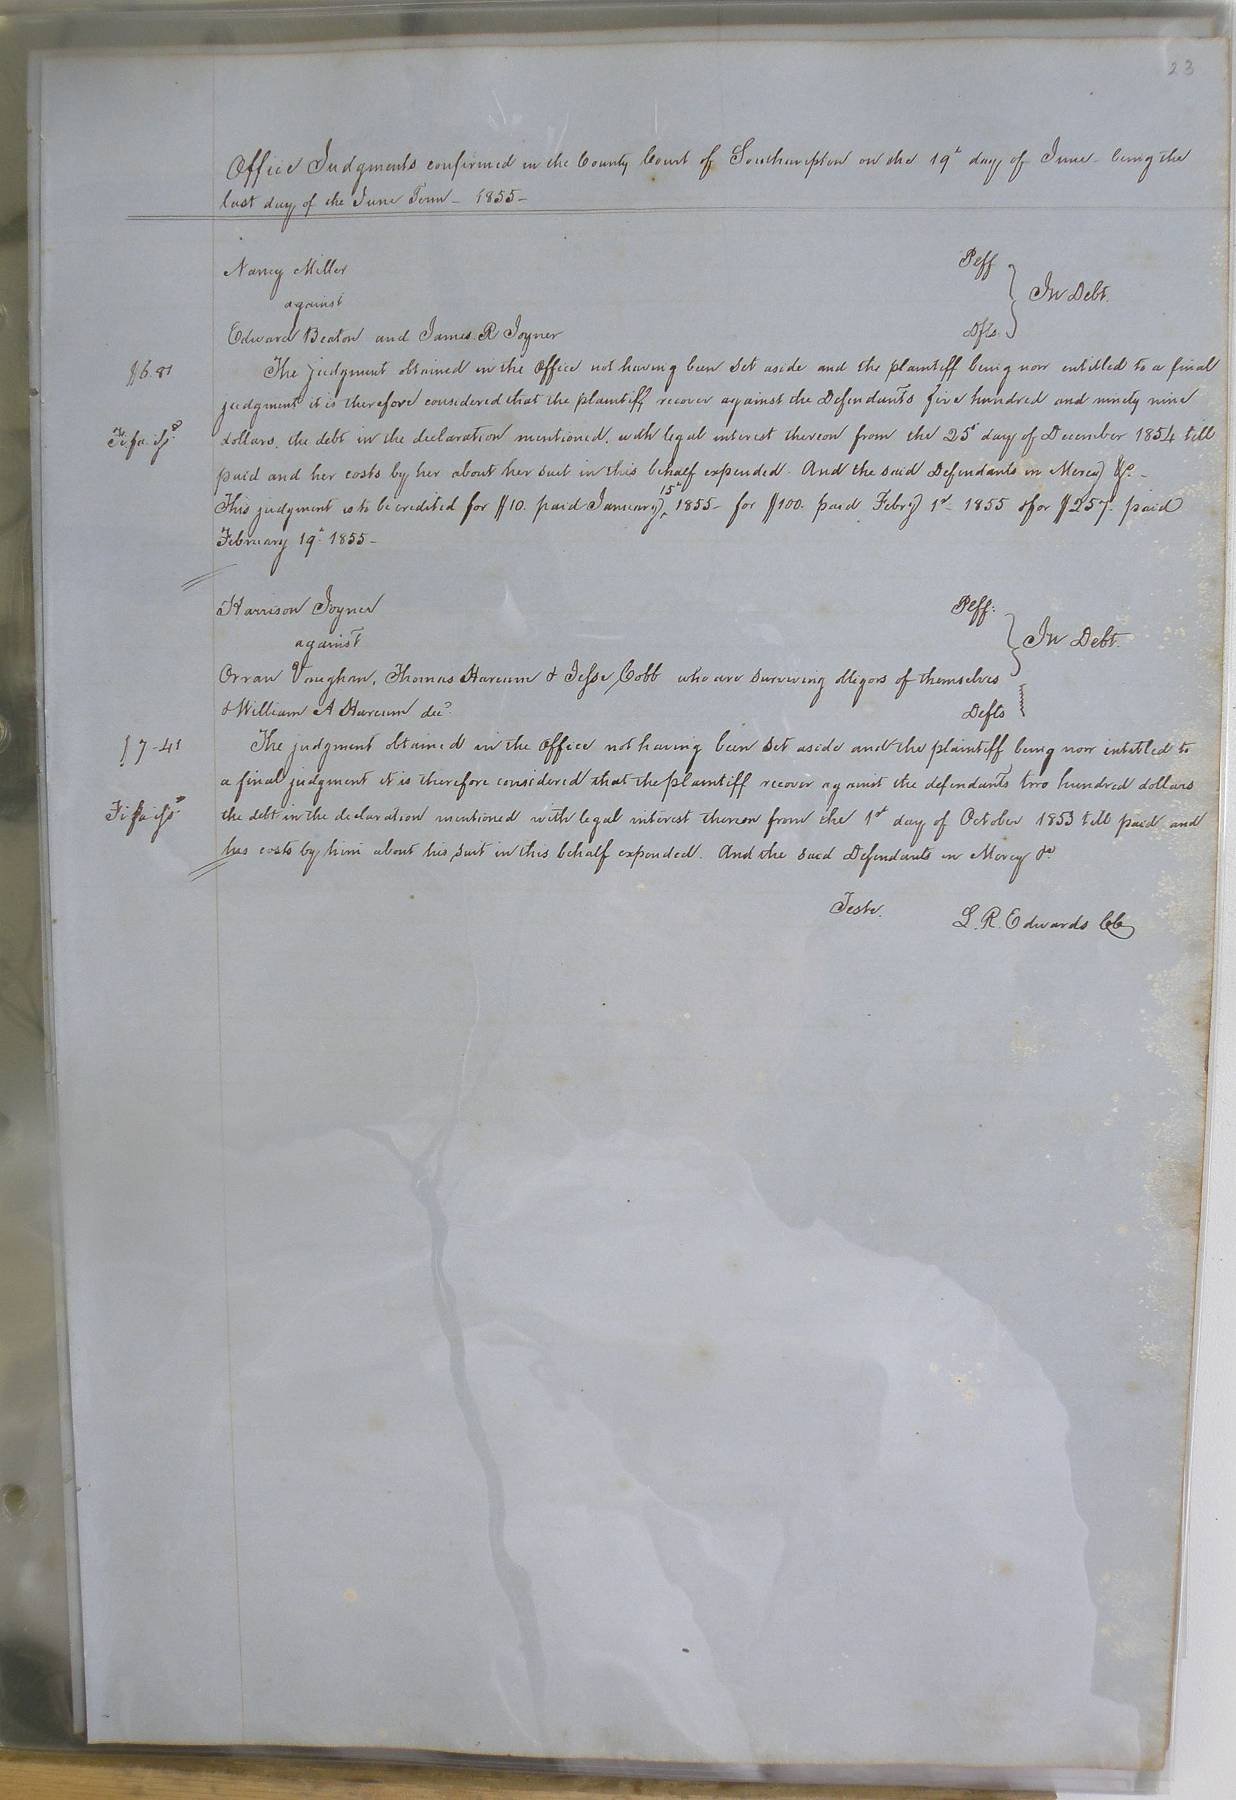 23
Office Judgments confirmed in the County Court of Southampton on the 19th day of June being the
last day of the June Term - 1855 -
Nancy Miller Plff
against In Debt.
Edward Beaton and James R Joyner Dfts.
$6.81 The judgment obtained in the Office not having been set aside and the plaintiff being now entitled to a final
judgment it is therefore considered that the plaintiff recover against the Defendants five hundred and ninety nine
Fi fa isd dollars, the debt in the declaration mentioned, with legal interest thereon from the 25th day of December 1854 till
paid and her costs by her about her suit in this behalf expended. And the said Defendants in Mercy &c. -
This judgment is to be credited for $10. paid January 15th 1855 - for $100. paid Febry 1st 1855 & for $257. paid
February 19th 1855 -
Harrison Joyner Plff:
against In Debt.
Orran Vaughan, Thomas Harcum & Jesse Cobb who are surviving obligors of themselves
& William A Harcum decd. Defts
$7-41 The judgment obtained in the Office not having been set aside and the plaintiff being now intitled to
a final judgment it is therefore considered that the plaintiff recover against the defendants two hundred dollars
Fi fa isd the debt in the declaration mentioned with legal interest thereon from the 1st day of October 1853 till paid and
his costs by him about his suit in this behalf expended. And the said Defendants in Mercy &c
Teste. L. R. Edwards CC